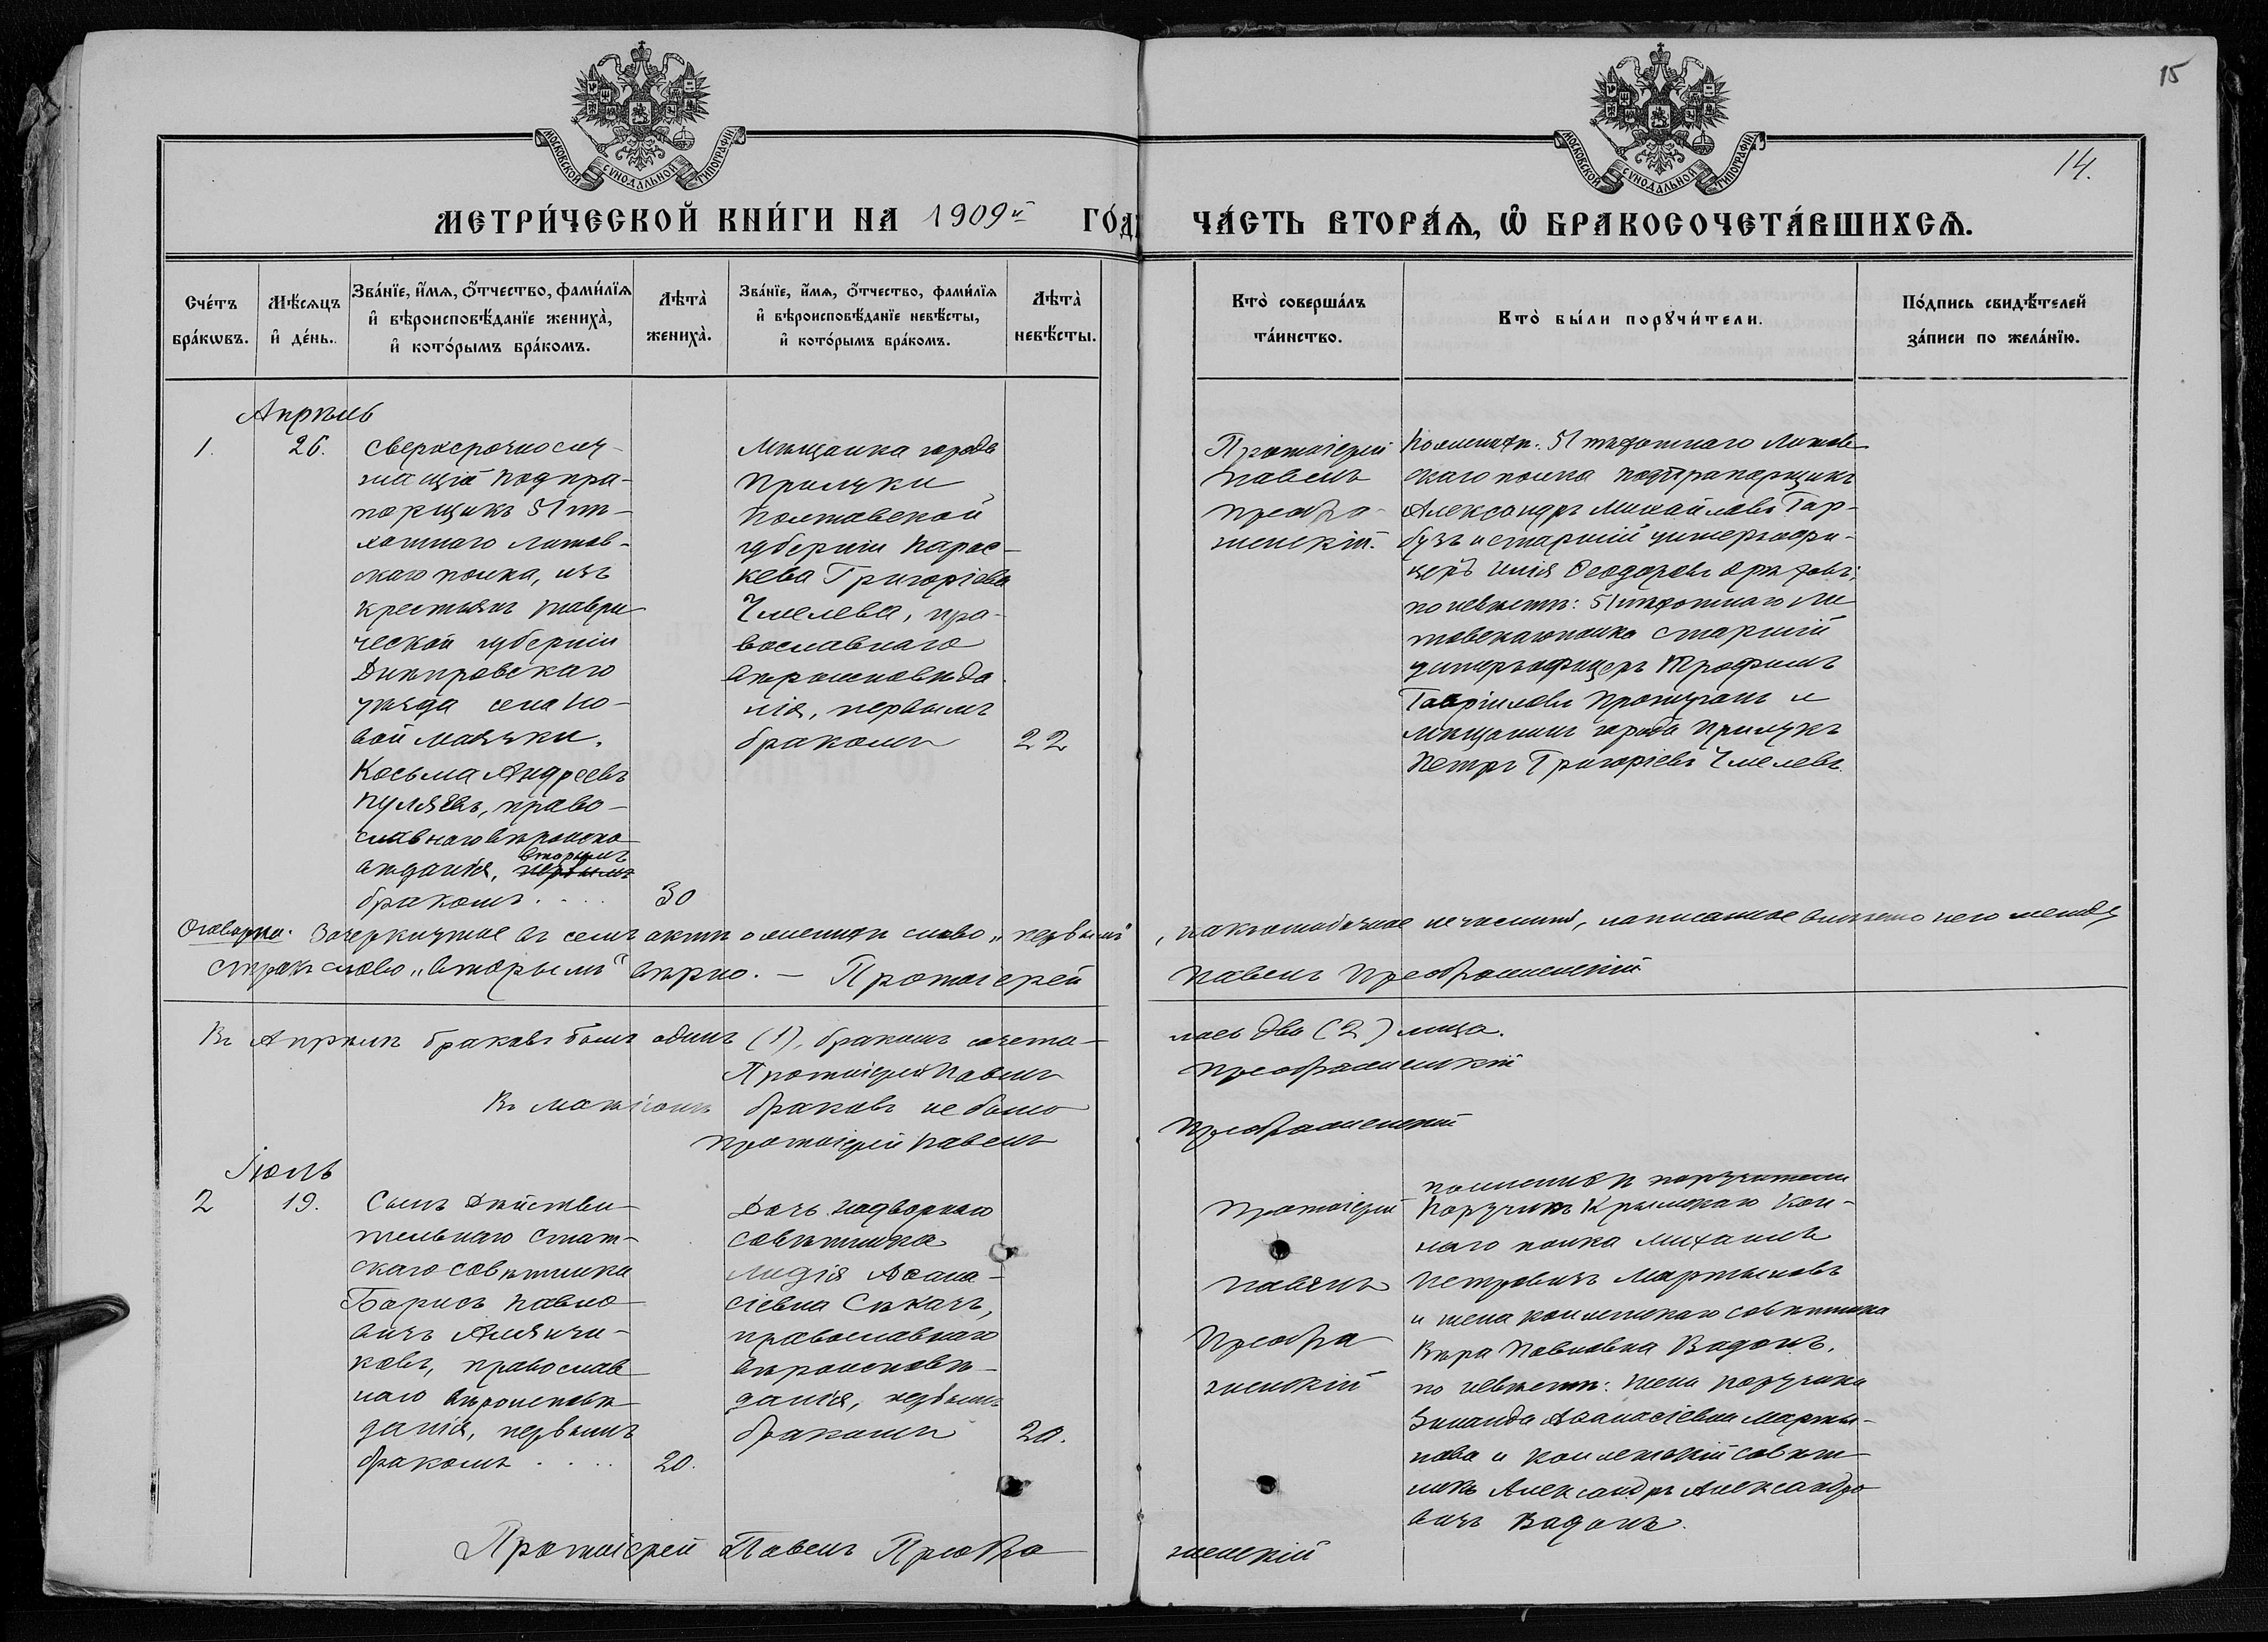 15
14.
МОСКОВСКОЙ СѴНОДАЛЬНОЙ ТИПОГРАФІИ
МОСКОВСКОЙ СѴНОДАЛЬНОЙ ТИПОГРАФІИ
МЕТРИ́ЧЕСКОЙ КНИ́ГИ НА 1909й ГО́ДЪ
ЧА́СТЬ ВТОРА́Ѧ, Ѽ БРАКОСОЧЕТА́ВШИХСѦ.
Сче́тъ бра́кѡвъ.
Мѣ́сяцъ и҆ де́нь.
Зва́нїе, и҆́мѧ, ѻ҆́тчество, фами́лїѧ и҆ вѣроисповѣ́данїе жениха̀, и҆ кото́рымъ бра́комъ.
Лѣта̀ жениха̀.
Зва́нїе, и҆́мѧ, ѻ҆́тчество, фами́лїѧ и҆ вѣроисповѣ́данїе невѣ́сты, и҆ кото́рымъ бра́комъ.
Лѣта̀ невѣ́сты.
Кто̀ соверша́лъ та́инство.
Кто̀ бы́ли порꙋчи́тели.
По́дпись свидѣ́телей за́писи по жела́нїю.
Апрѣль
1.
26.
Сверхсрочнослу-
жащій подпра-
порщикъ 51 пѣ-
хотнаго Литов-
скаго полка, изъ
крестьянъ Таври
ческой губерніи
Днѣпровскаго
уѣзда села Но-
вой Маячки,
Косьма Андреевъ
Пуляевъ, право-
славнаго вѣроиспо
вѣданія, первымъ
вторымъ
бракомъ . . . .
30
Мѣщанка города
Прилуки
Полтавской
губерніи Парас-
кева Григоріева
Чмелева, пра-
вославнаго
вѣроисповѣда
нія, первымъ
бракомъ
22
Протоіерей
Павелъ
Преобра-
женскій.
По женихѣ: 51 пѣхотнаго Литов
скаго полка подпрапорщикъ
Александръ Михайловъ Гар-
бузъ и старшій унтеръ-офи-
церъ Илія Ѳеодоровъ
по невѣстѣ: 51 пѣхотнаго Ли
товскаго полка старшій
унтеръ-офицеръ Трофимъ
Гавріиловъ и
мѣщанинъ города Прилукъ
Петръ Григоріевъ Чмелевъ.
Оговорка. Зачеркнутое въ семъ актѣ о женихѣ слово „первымъ", какъ ошибочное не числить, написанное вмѣсто него между
строкъ слово „вторымъ" вѣрно. — Протоіерей Павелъ Преображенскій
Въ Апрѣлѣ браковъ былъ одинъ (1), бракомъ сочета-
лось два (2) лица.
Протоіерей Павелъ Преображенскій
Въ Маѣ браковъ не было
Протоіерей Павелъ Преображенскій
Іюль
2
19.
Сынъ Дѣйстви-
тельнаго Стат-
скаго Совѣтника
Борисъ Павло-
вичъ Алянчи-
ковъ, православ
наго вѣроисповѣ
данія, первымъ
бракомъ . . . .
20.
Дочь надворнаго
совѣтника
Лидія Аѳана-
сіевна Сѣкачъ,
православнаго
вѣроисповѣ-
данія, первымъ
бракомъ
20.
Протоіерей
Павелъ
Преобра
женскій
по женихѣ поручители
Поручикъ Крымскаго Кон-
наго полка Михаилъ
Петровичъ Мартыновъ
и жена коллежскаго совѣтника
Вѣра Павловна Вадонъ,
по невѣстѣ: жена поручика
Зинаида Аѳанасіевна Марты-
нова и Коллежскій совѣт-
никъ Александръ Александро
вичъ Вадонъ.
Протоіерей Павелъ Преображенскій